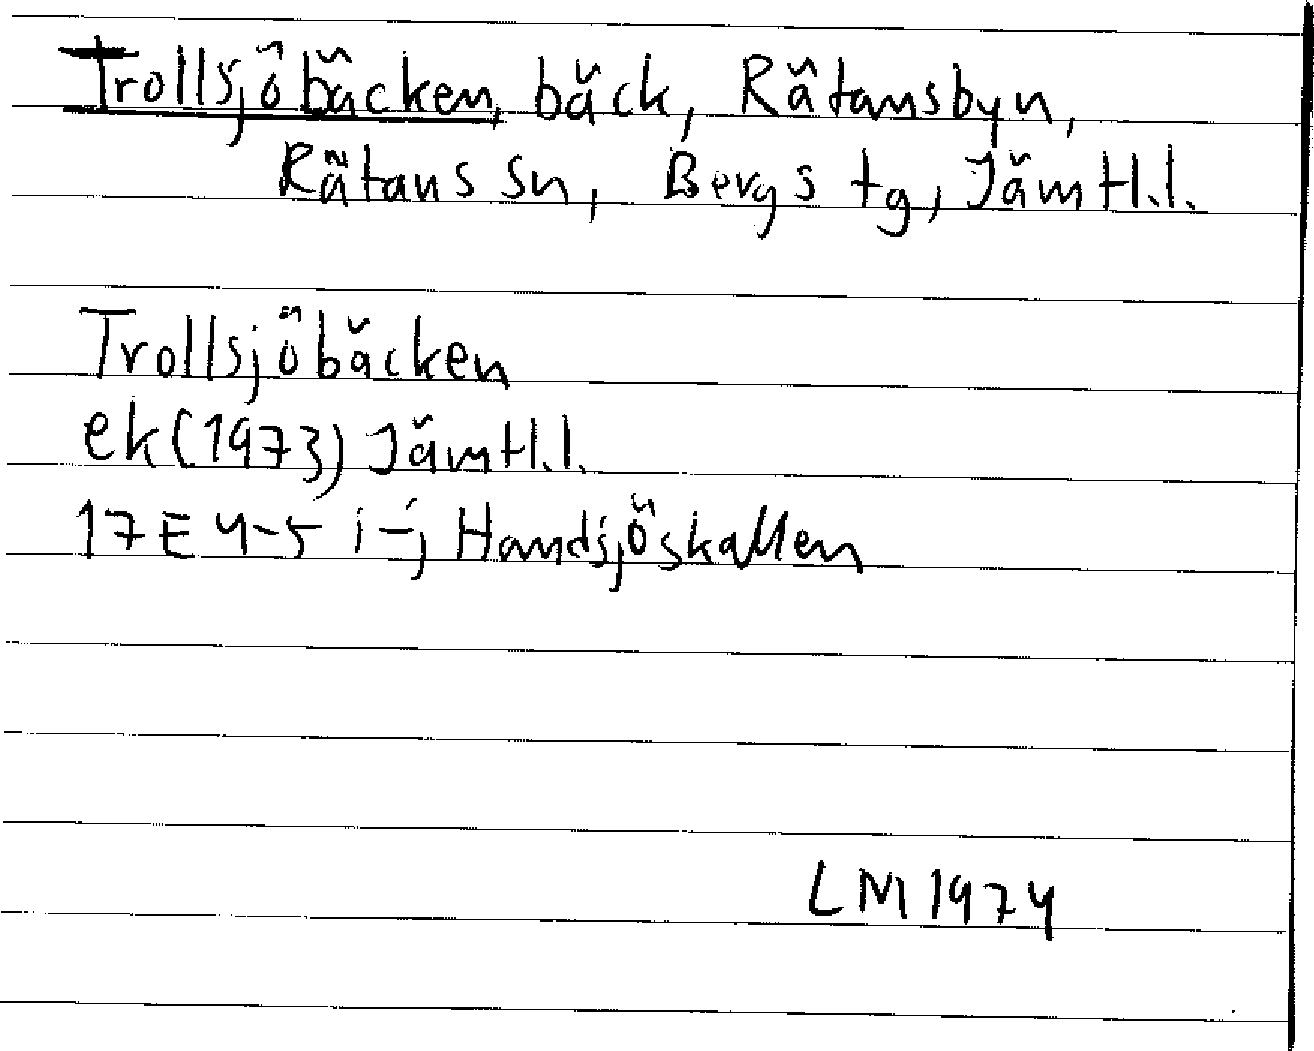 Trollsjöbäcken, bäck, Rätansbyn,
Rätans sn, Bergs tg, Jämtl.l.
Trollsjöbäcken
ek (1973) Jämtl.l.
17E 4-5 i-j Handsjöskallen
LM 1974